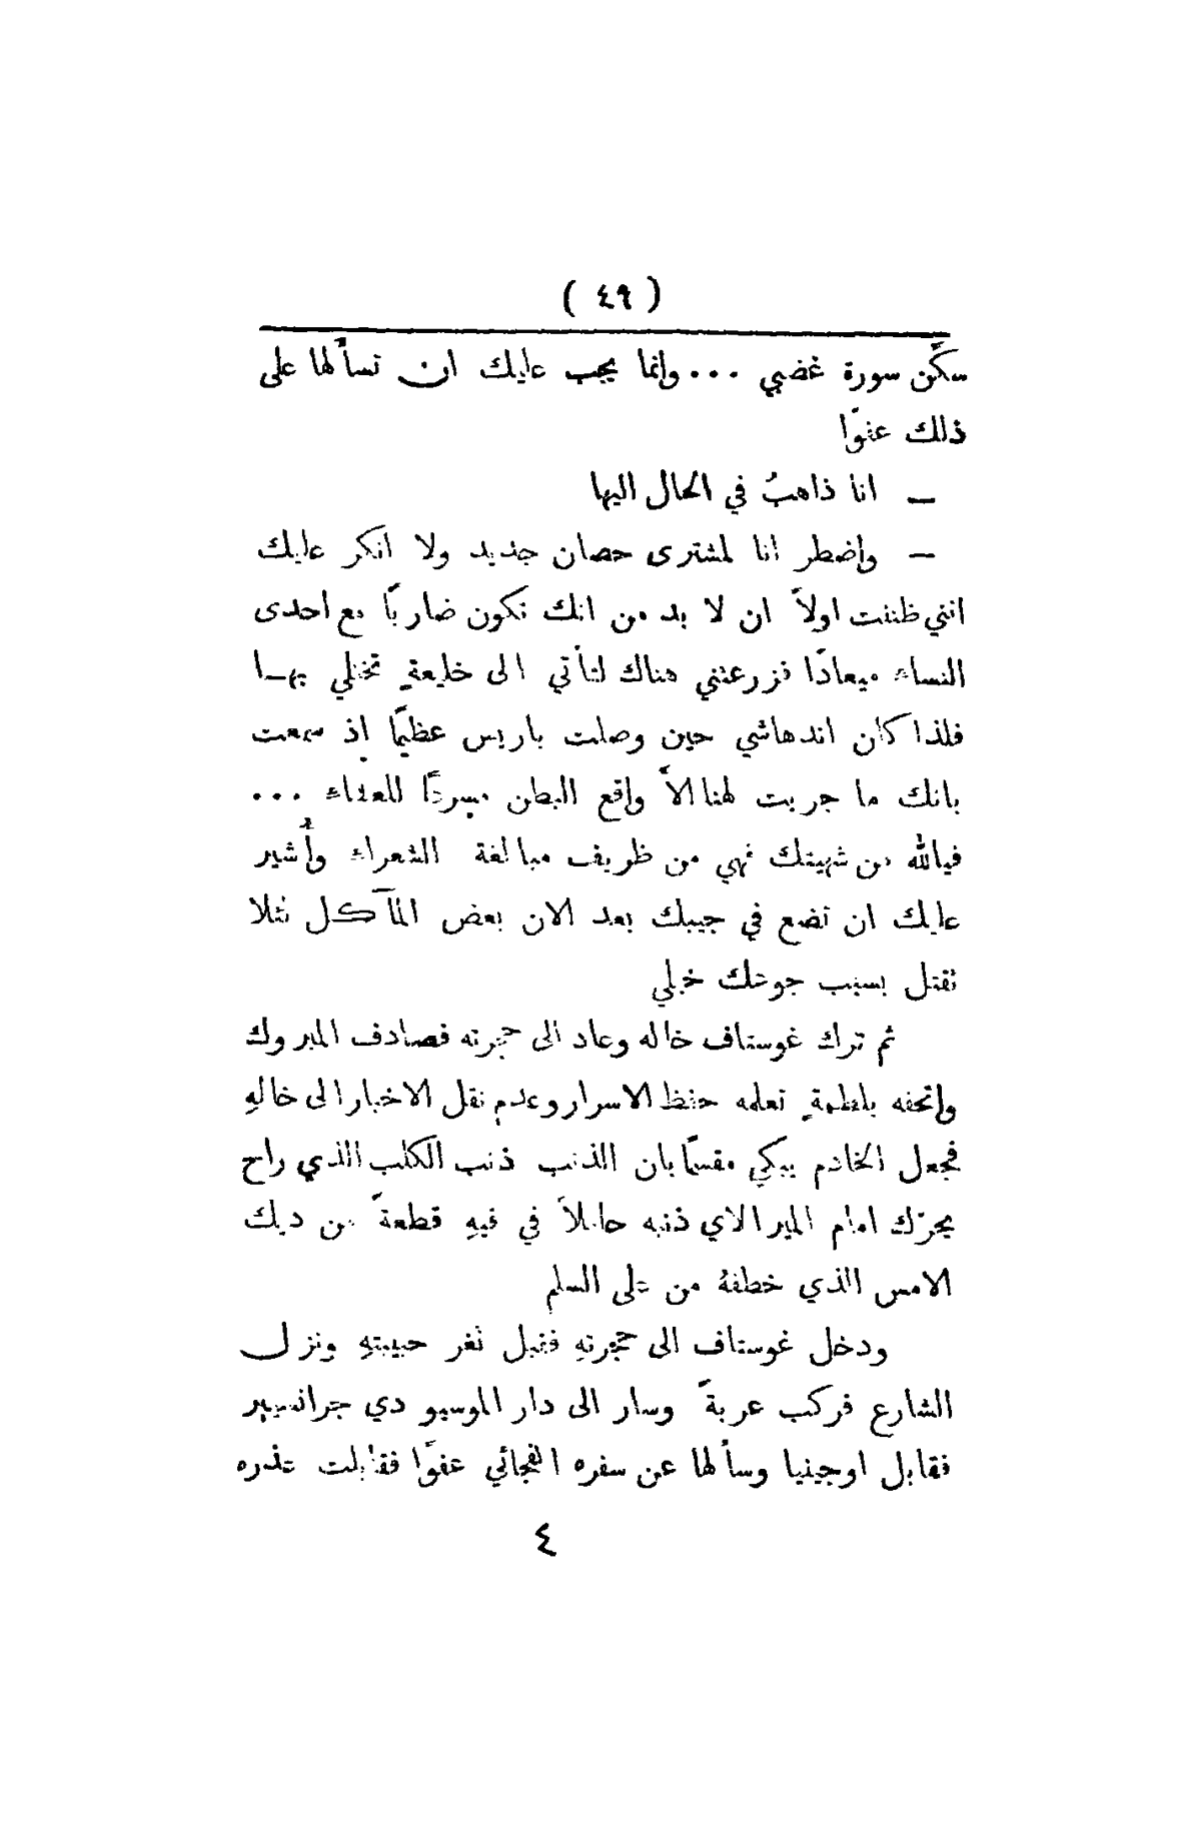 ( ٤٩ )
سكَّن سورة غضبي ... وانما يجب عليك ان تسأَلها على
ذلك عفوًا
— انا ذاهبُ في الحال اليها
— واضطر انا لمشترى حصان جديد ولا انكر عليك
انني ظننت اولاً ان لا بد من انك تكون ضاربًا مع احدى
النساء ميعادًا فزرعتني هناك لتأتي الى خليعةٍ تختلي بهـا
فلذا كان اندهاشي حين وصلت باريس عظيمًا إذ سمعت
بانك ما جربت لهنا الاَّ واقع البطن مسرعًا للغذاء ...
فيالله من شهيتك فهي من ظريف مبالغة الشعراء وأُشير
عليك ان تضع في جيبك بعد الان بعض المآكل لئلا
تقتل بسبب جوعك خيلي
ثم ترك غوستاف خاله وعاد الى حجرته فصادف المبروك
واتحفه بلطمةٍ تعلمه حفظ الاسرار وعدم نقل الاخبار الى خالهِ
فجعل الخادم يبكي مقسمًا بان الذنب ذنب الكلب الذي راح
يحرّك امام الميرالاي ذنبه حاملاً في فيهِ قطعةً من ديك
الامس الذي خطفهُ من على السلم
ودخل غوستاف الى حجرتهِ فقبل ثغر حبيبتهِ ونزل
الشارع فركب عربةً وسار الى دار الموسيو دي جرانسيير
فقابل اوجينيا وسأَلها عن سفره الفجائي عفوًا فقابلت عذره
٤